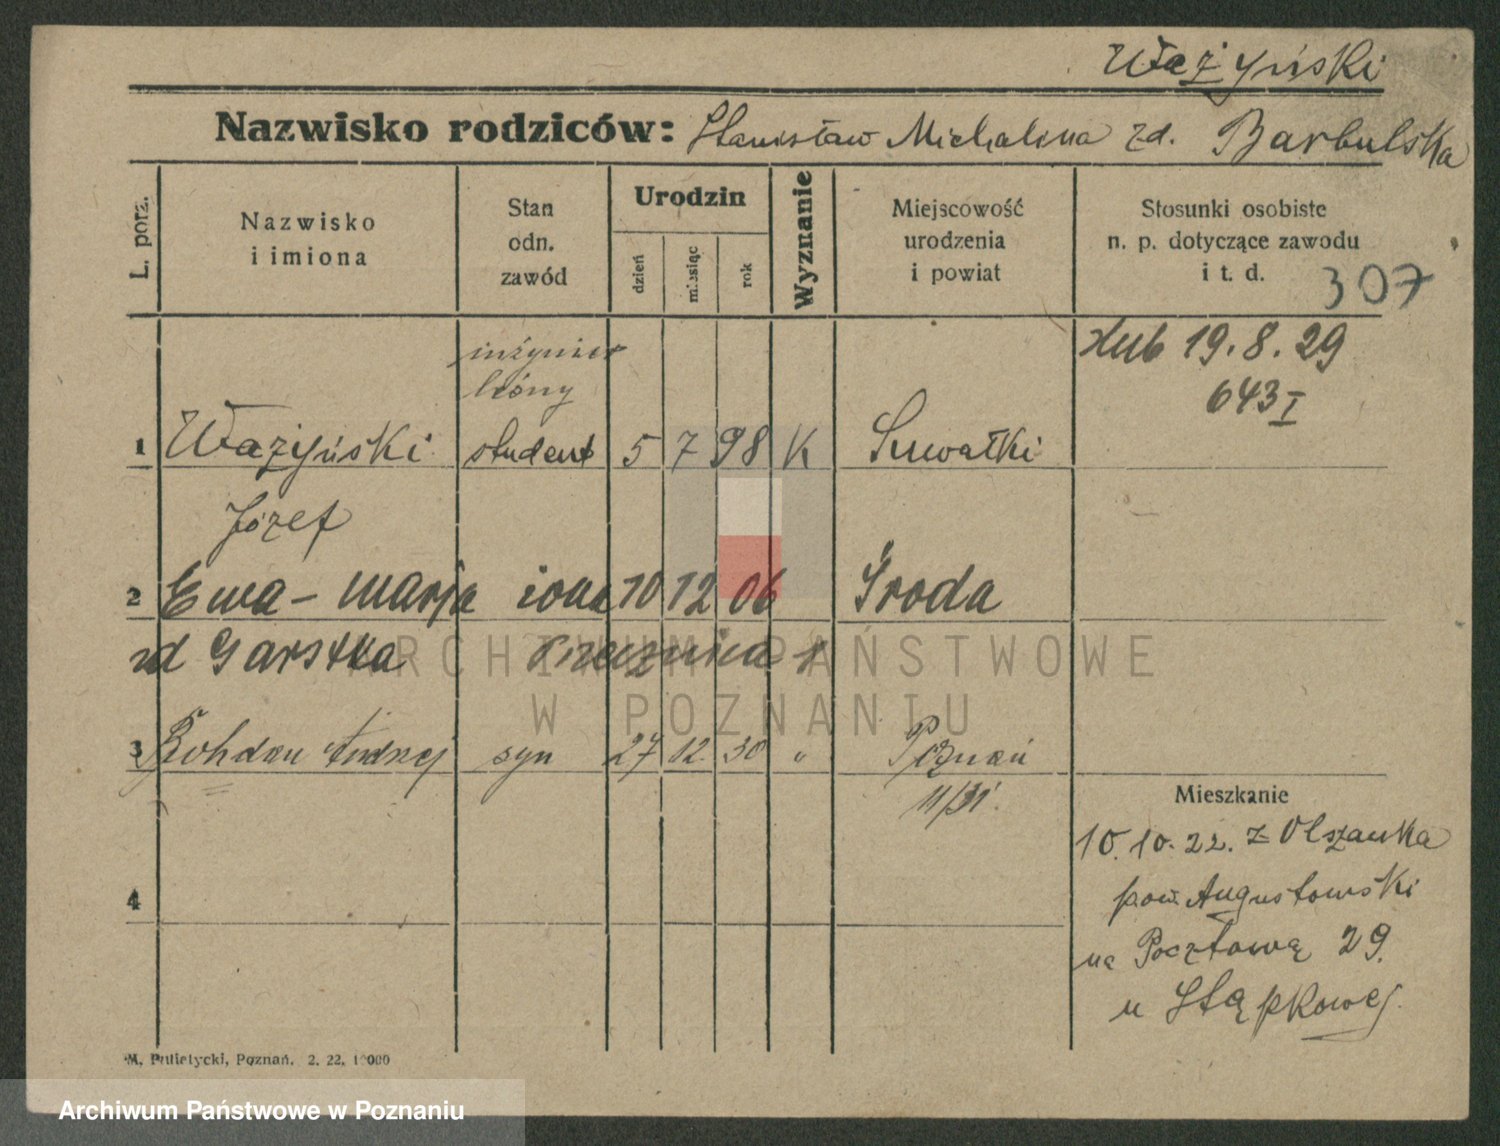 Ważyński
Nazwisko rodziców: Stanisław Michalina zd. Barbulska
L. porz.
Nazwisko
i imiona
Stan
odn.
zawód
Urodzin
dzień
miesiąc
rok
Wyznanie
Miejscowość
urodzenia
i powiat
Stosunki osobiste
n. p. dotyczące zawodu
i t. d.
307
ślub 19.8.29
643 I
inżynier
leśny
1 Ważyński student 5 7 98 K Suwałki
Józef
2 Ewa-Marja żona 10 12 06 Środa
zd Garstka
3 Bohdan Andrzej syn 27 12. 30 " Poznań
11/31.
4
Mieszkanie
10.10.22. z Olszanka
pow. Augustowski
na Pocztową 29.
u Stąpkowej.
M. Putiatycki, Poznań. 2. 22. 10000
ARCHIWUM PAŃSTWOWE
W POZNANIU
Archiwum Państwowe w Poznaniu